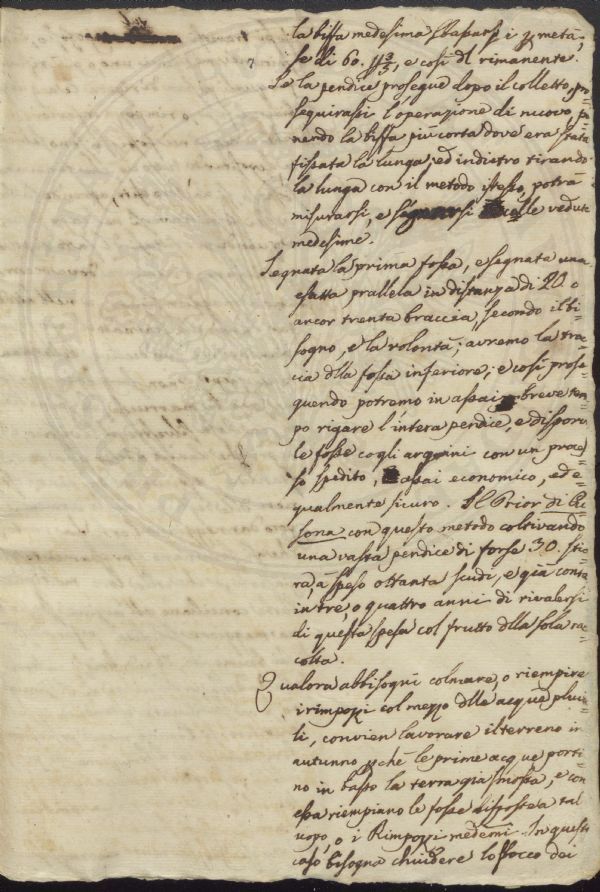 la biffa medesima sbassarsi i p metà,
se di 60. 2/3, e così dl rimanente.
Se la pendice prosegue dopo il colletto, pro=
seguirassi l'operazione di nuovo, po=
nendo la biffa più corta dove era stata
fissata la lunga; ed indietro tirando
la lunga con il metodo istesso, potrà
misurarsi, e segnarsi colle vedute
medesime.
Segnata la prima fossa, e segnata una
esatta prallela in distanza di 20. o
ancor trenta braccia, secondo il bi=
sogno, e la volontà; avremo la trac=
cia dlla fossa inferiore; e così prose=
quendo potremo in assai breve tem=
po rigare l'intera pendice, e disporre
le fosse cogli argini con un proces=
so spedito, assai economico, ed e=
qualmente sicuro. Il Prior di
sona con questo metodo coltivando
una vasta pendice di forse 30. stio=
ra, à speso ottanta scudi, e già conta
in trè, o quattro anni di rivalersi
di questa spesa col frutto dlla sola ra=
colta.
Qualora abbisogni colmare, o riempire
i rimpozzi col mezzo dlle acque pluvia=
li, convien lavorare il terreno in
autunno, pchè le prime acque porti=
no in basso la terra già smossa, e con
essa riempiano le fosse disposte a tal
uopo, o i Rimpozzi medemi. In questo
caso bisogna chiudere lo sbocco dei